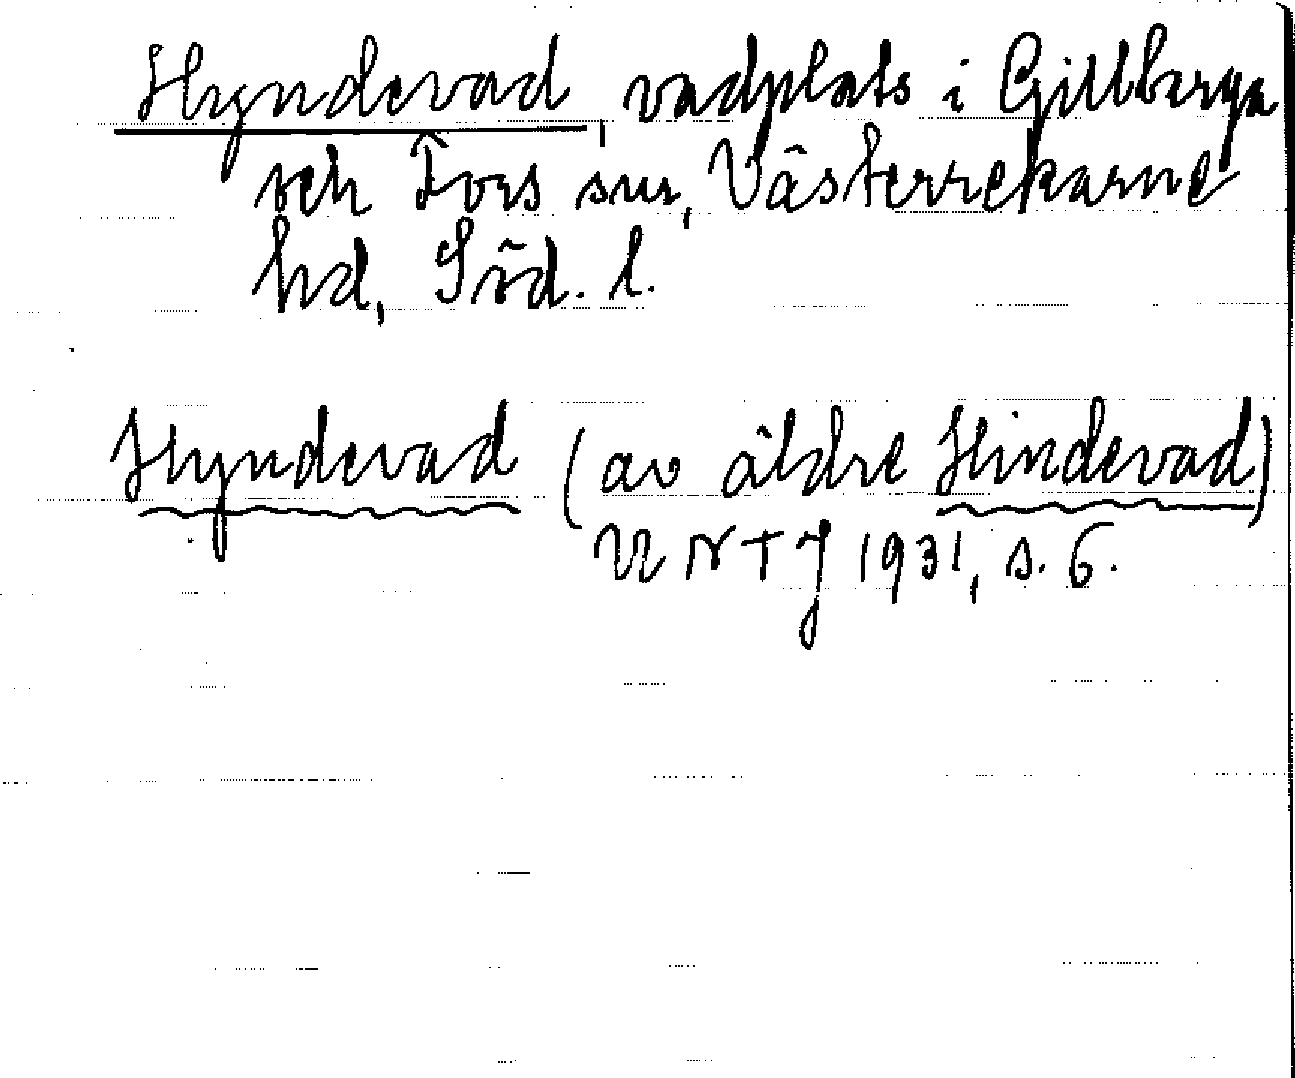 Hyndevad, vadplats i Gillberga
och Fors snr, Västerrekarne
hd, Söd. l.
Hyndevad (av äldre Hindevad)
VZ NTJ 1931, s. 6.